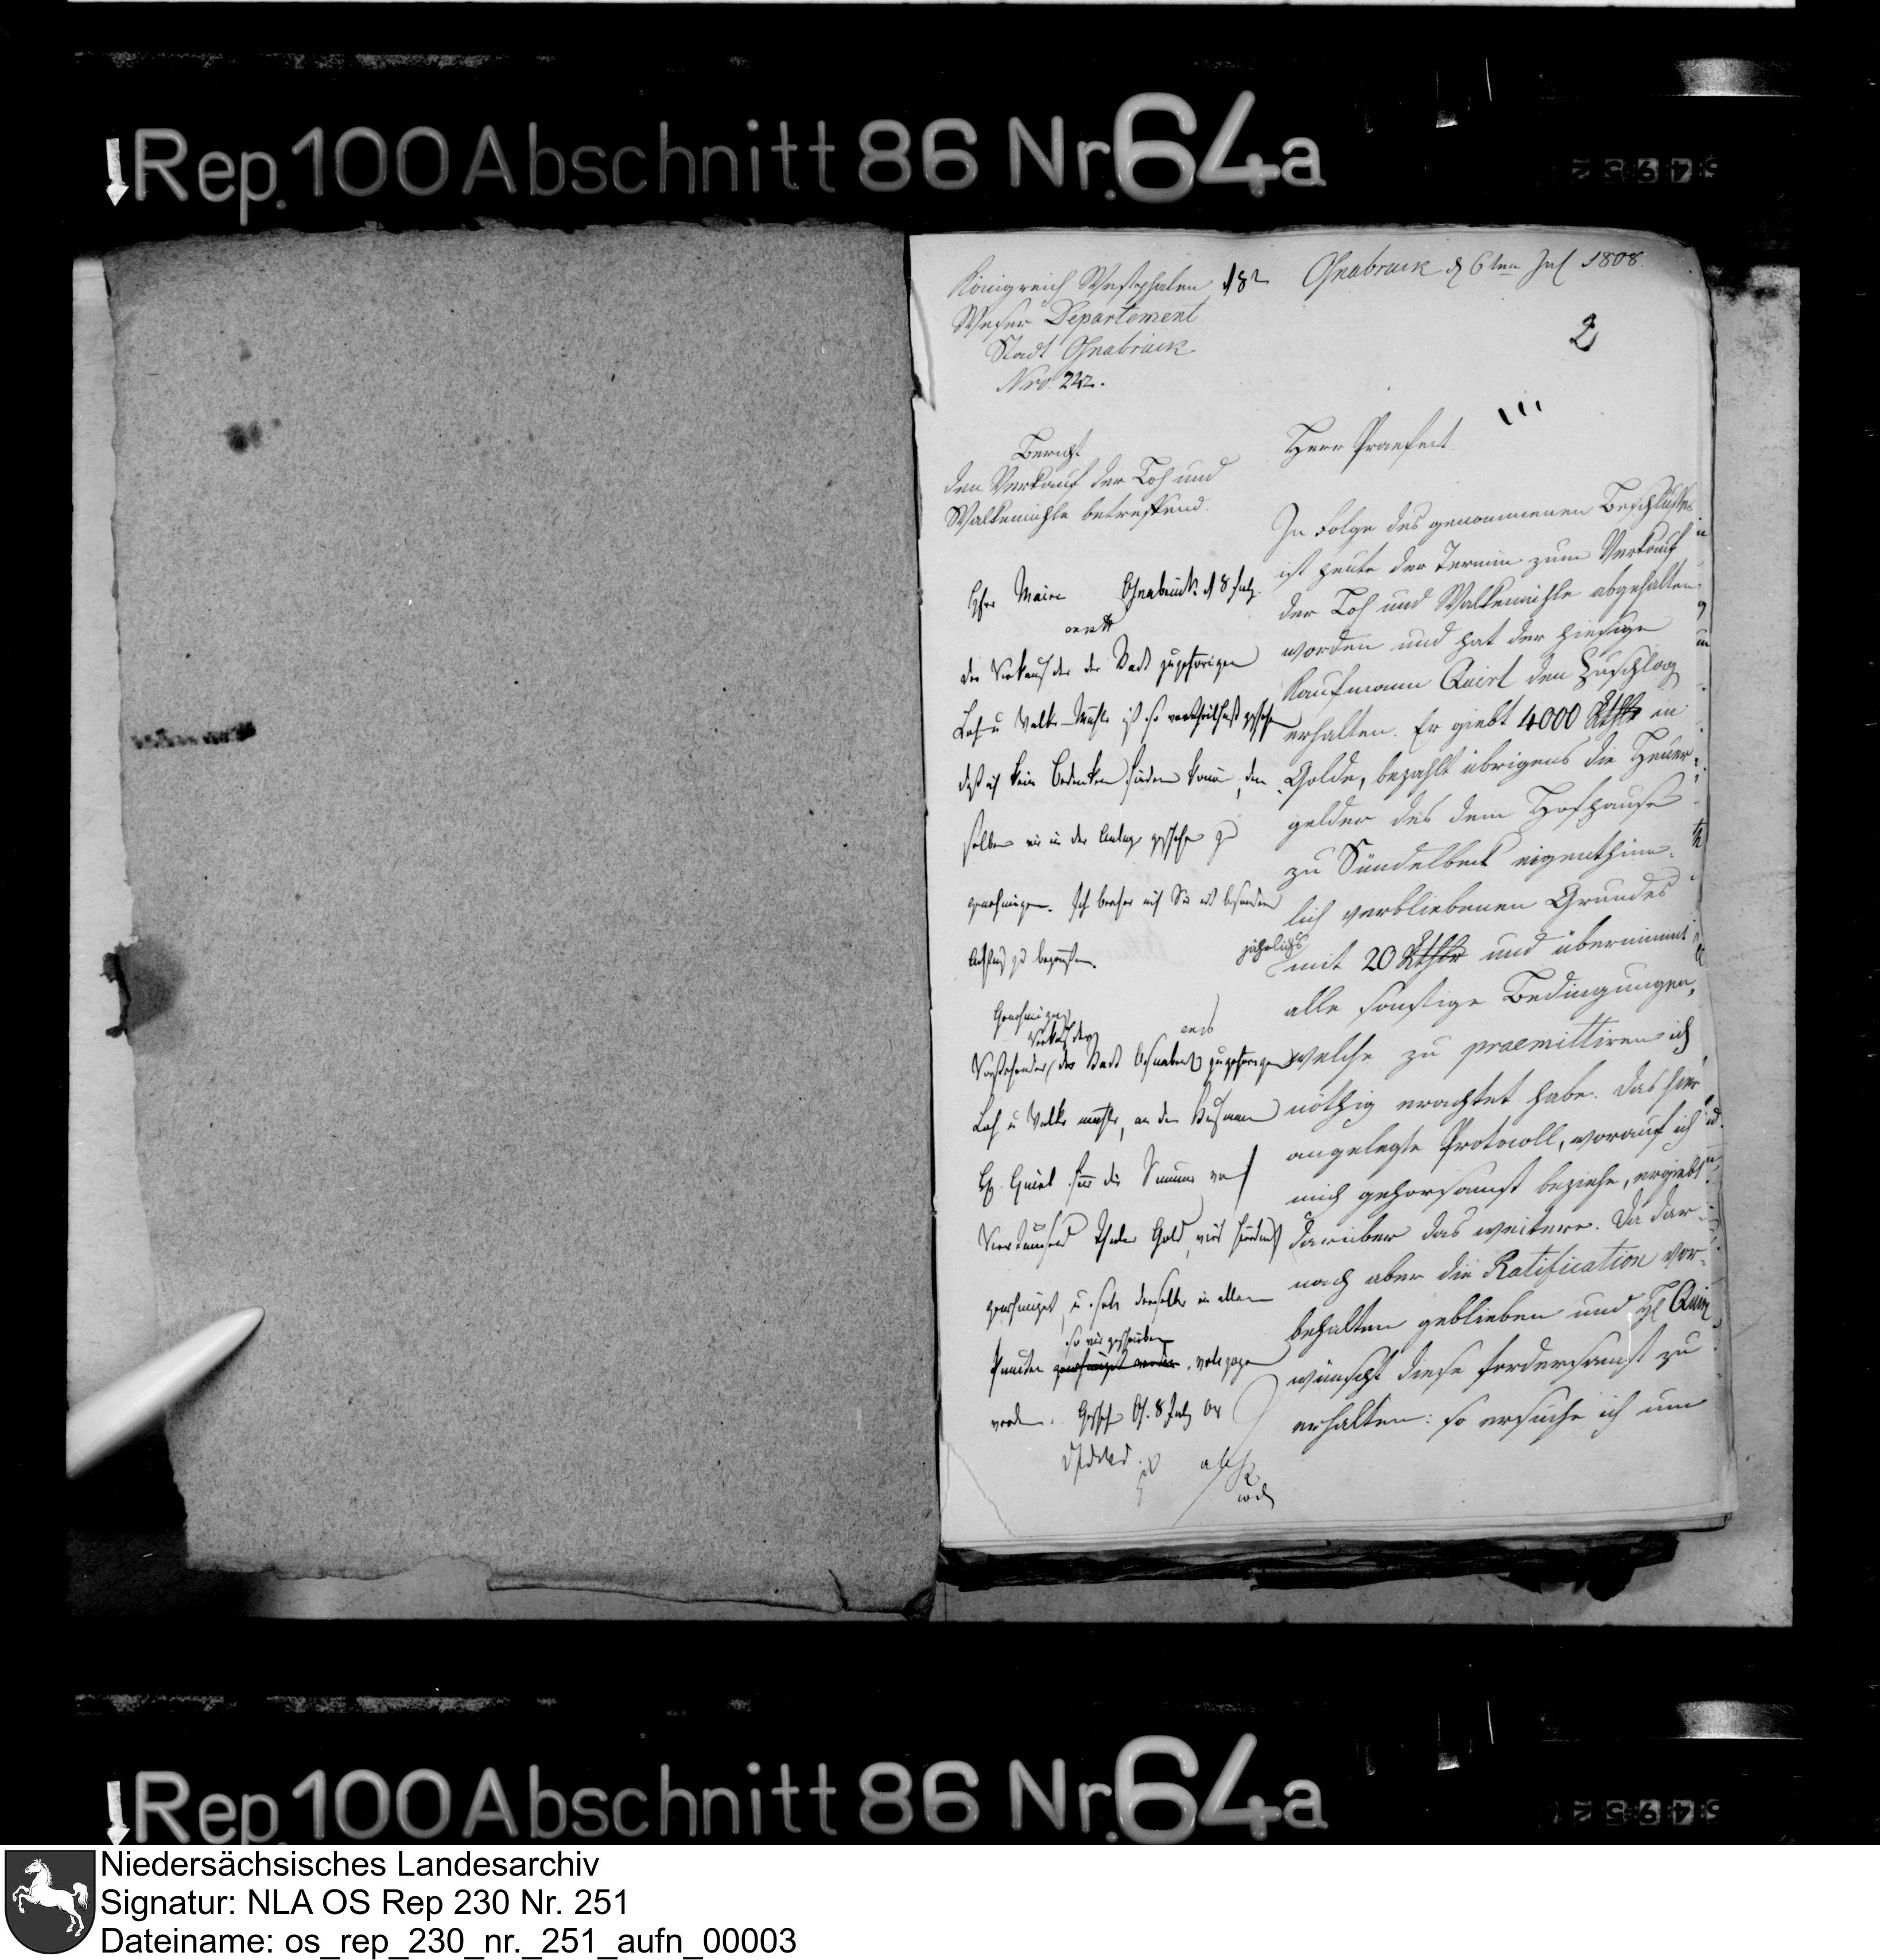 Rep. 100 Abschnitt 86 Nr. 64a
Königreich Westphalen
Weser Departement
Stadt Osnabrück
Nro. 242.
Osnabrück d 6ten Jul 1808.
2
Bericht
den Verkauf der Loh und
Walkemühle betreffend.
Herr Praefect
In Folge des genommenen Beschlusses
ist heute der Termin zum Verkauf
der Loh und Walkemühle abgehalten
worden und hat der hiesige
Kaufmann Quirl den Zuschlag
erhalten. Er giebt 4000 Rthlr in
Golde, bezahlt übrigens die Heuer
gelder des dem Hofhause
zu Sündelbeck eigenthüm-
lich verbliebenen Grundes
jährlichs
mit 20 Rthlr und übernimmt
alle sonstige Bedingungen,
welche zu praemittiren ich
nöthig erachtet habe. Das hier
angelegte Protocoll, worauf ich
mich gehorsamst beziehe, ergiebt
darüber das weitere. Da dar-
nach aber die Ratification vor-
behalten geblieben und H Quirl
wünscht diese fordersamst zu
erhalten: so ersuche ich um
Herr Maire Osnabrück d 8 July
der Verkauf der der Stadt zugehörigen
Loh u Walke-Mühle ist so vortheilhaft geschehen
daß ich kein Bedenken finden kann, den
selben wie in der Anlage geschehen zu
genehmigen. Ich beehre mich Sie mit besonderer
Achtung zu begrüßen.
Genehmigung
Verkauf der
Vorstehender der Stadt Osnabrück zugehörigen
Loh u Walke mühle, an den Kaufmann
H. Quirl für die Summe von
Viertausend Thaler Gold, wird hierdurch
genehmiget, u soll derselbe in allen
so wie geschrieben
Puncten genehmiget werden vollzogen
werden. Gesch Os. 8 July 08
Rep. 100 Abschnitt 86 Nr. 64a
Niedersächsisches Landesarchiv
Signatur: NLA OS Rep 230 Nr. 251
Dateiname: os_rep_230_nr._251_aufn_00003